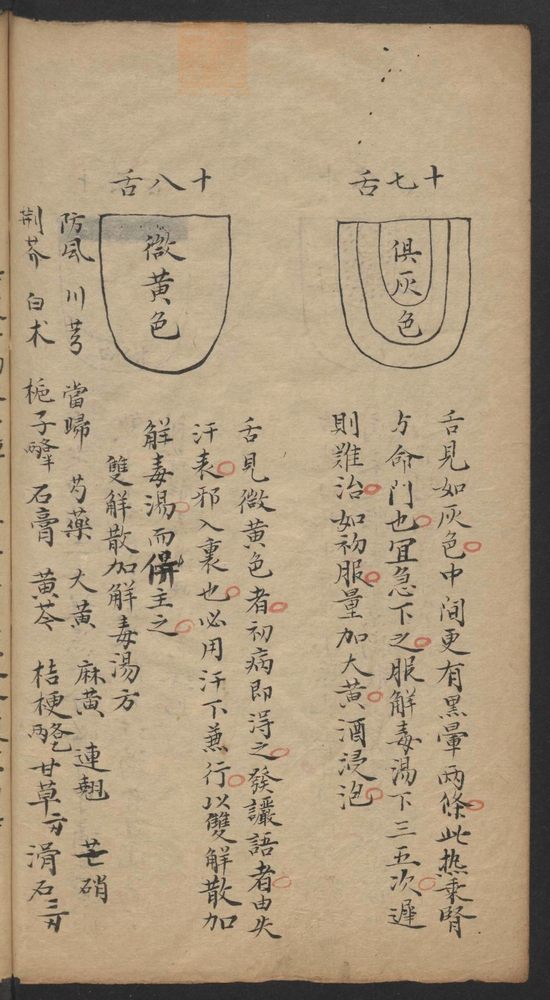 十七舌
俱灰色
舌見如灰色中间更有黑暈兩條此热乘腎
与命門也宜急下之服解毒湯下三五次遲
則難治如初服量加大黄酒浸泡
十八舌
微黄色
舌見微黄色者初病即得之發讝語者由失
汗表邪入裏也必用汗下兼行以雙解散加
解毒湯而併主之
雙解散加解毒湯方
防風 川芎 當歸 芍藥 大黄 麻黄 連翹 芒硝
荆芥 白术 梔子 石膏 黄芩 桔梗 甘草 滑石